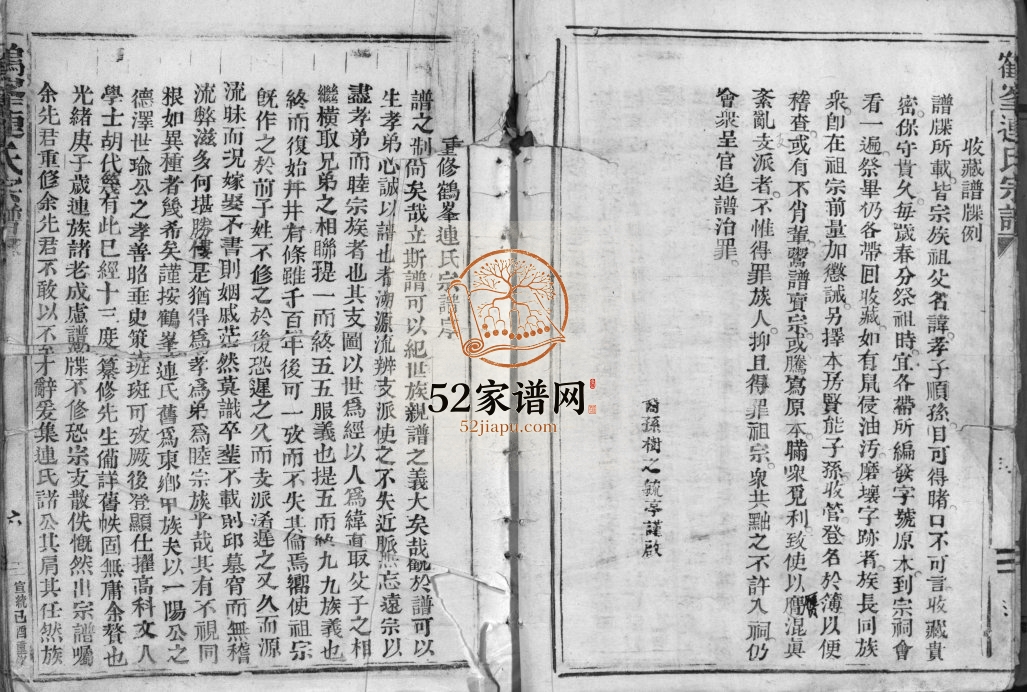 鶴峯連氏宗譜
收藏譜牒例
譜牒所載皆宗族祖父名諱孝子順孫目可得睹口不可言收藏貴
密保守貴久每歲春分祭祖時宜各帶所編發字號原本到宗祠會
看一遍祭畢仍各帶回收藏如有鼠侵油汚磨壞字跡者族長同族
衆即在祖宗前量加懲誡另擇本房賢能子孫收管登名於簿以便
稽查或有不肖輩鬻譜賣宗或謄寫原本瞞衆覓利致使以贋混眞
紊亂支派者不惟得罪族人抑且得罪祖宗衆共黜之不許入祠仍
會衆呈官追譜治罪
裔孫樹之毓亭謹啟
重修鶴峯連氏宗譜序
譜之制尚矣哉立斯譜可以紀世族親譜之義大矣哉觀於譜可以
生孝弟心誠以譜也者溯源流辨支派使之不失近脈無忘遠宗以
盡孝弟而睦宗族者也其支圖以世爲經以人爲緯直取父子之相
繼橫取兄弟之相聯提一而終五五服義也提五而終九九族義也
終而復始井井有條雖千百年後可一攷而不失其倫焉嚮使祖宗
旣作之於前子姓不修之於後恐遲之久而支派淆遲之又久而源
流昧而况嫁娶不書則姻戚茫然莫識卒塟不載則邱墓窅而無稽
流弊滋多何堪勝慨是猶得爲孝爲弟爲睦宗族乎哉其有不視同
根如異種者幾希矣謹按鶴峯連氏舊爲東鄉甲族夫以一陽公之
德澤世瑜公之孝善昭垂史策班班可攷厥後登顯仕擢高科文人
學士胡代幾有此已經十三度纂修先生備詳舊帙固無庸余贅也
光緒庚子歲連族諸老成慮譜牒不修恐宗支散佚慨然出宗譜囑
余先君重修余先君不敢以不才辭爰集連氏諸公共肩其任然族
鶴峯連氏宗譜
六
宣統己酉重
52家谱网
52jiapu.com